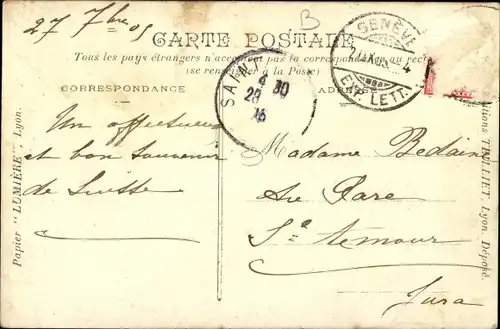 27 7bre 05
B
CARTE POSTALE
Tous les pays étrangers n'acceptent pas la correspondance au recto
(se renseigner à la Poste)
CORRESPONDANCE
ADRESSE
GENÈVE
EXP. LETT.
SAINT
Un affectueux
et bon souvenir
de Suisse
Madame Bedain
Au Parc
St Amour
Jura
Papier "LUMIÈRE" Lyon.
Editions THULLIET, Lyon. Déposé.